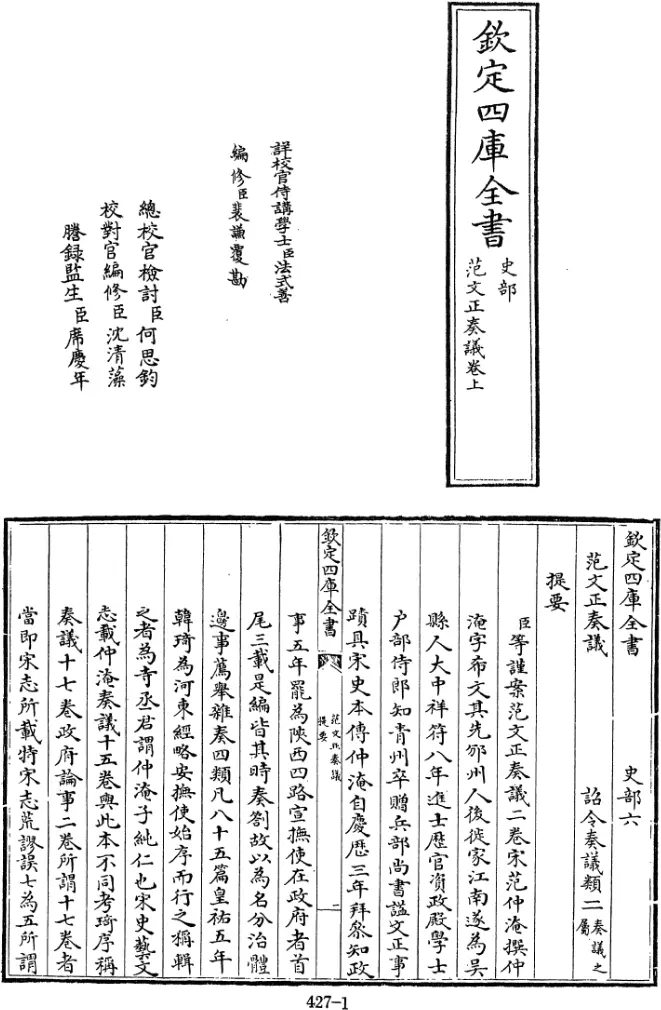 欽定四庫全書
史部
范文正奏議卷上
詳校官侍講學士臣法式善
編修臣裴謙覆勘
總校官檢討臣何思鈞
校對官編修臣沈清藻
謄録監生臣席慶年
欽定四庫全書
史部六
范文正奏議
詔令奏議類二奏議之屬
提要
臣等謹案范文正奏議二卷宋范仲淹撰仲
淹字希文其先邠州人後徙家江南遂為吳
縣人大中祥符八年進士歷官資政殿學士
户部侍郎知青州卒贈兵部尚書謚文正事
蹟具宋史本傳仲淹自慶歷三年拜叅知政
欽定四庫全書
范文正奏議
提要
一
事五年罷為陝西四路宣撫使在政府者首
尾三載是編皆其時奏劄故以為名分治體
邊事薦舉雜奏四類凡八十五篇皇祐五年
韓琦為河東經略安撫使始序而行之稱輯
之者為寺丞君謂仲淹子純仁也宋史藝文
志載仲淹奏議十五卷與此本不同考琦序稱
奏議十七卷政府論事二卷所謂十七卷者
當即宋志所載特宋志荒謬誤七為五所謂
427-1